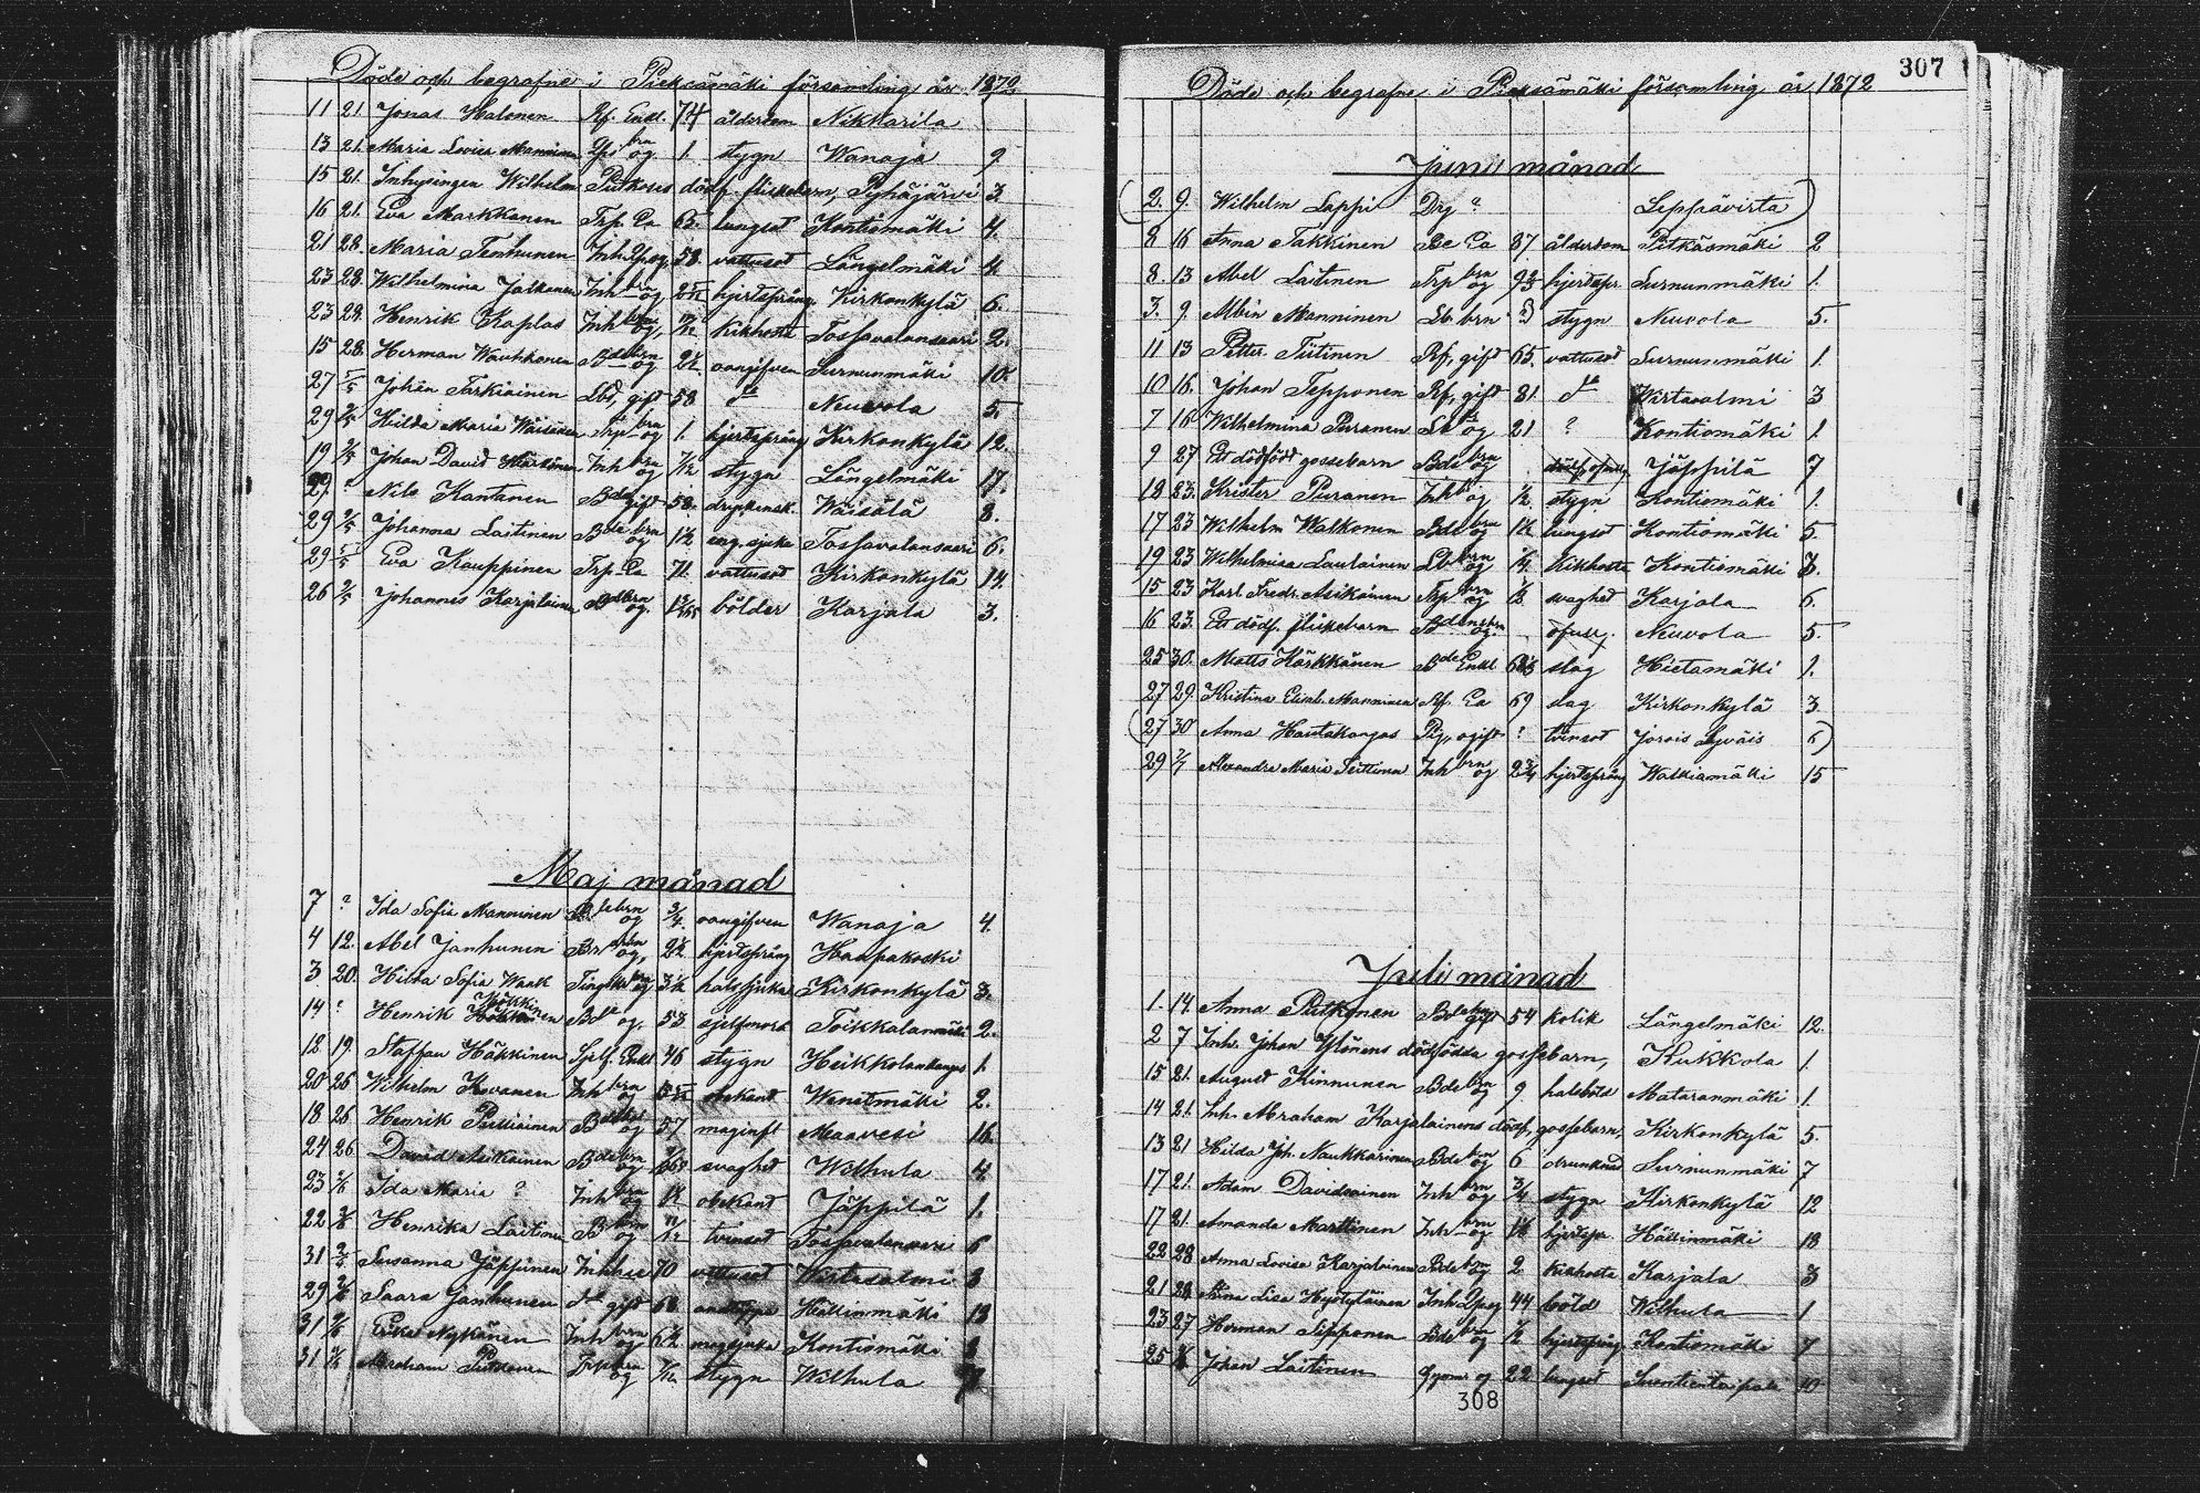 Döde och begrafne i Pieksämäki församling år 1872
11 21 Jonas Halonen Rf. Enkl. 74 ålderdom Nikkarila
13 21. Maria Lovisa Manninen brn og 1. stygn Wanaja 9
15 21. Inhysingen Wilhelm Putkonens dödf. flickebarn, Pyhäjärvi 3.
16 21. Eva Markkanen Trp. Ea 65. lungsot Kontiomäki 4.
21 28. Maria Tenhunen Inh. og. 58. vattusot Längelmäki 4.
23 28. Wilhelmina Jalkanen Inh brn og hjertsprång Kirkonkylä 6.
23 28. Henrik Kaplas Inh brn og, kikhosta Tossavalansaari 2.
15 28. Herman Wauhkonen Bde brn og 2½ oangifven Surnunmäki 10.
27 5/5 Johan Tarkiainen Lbd, gift 58 do Neuvola 5.
29 2/5 Hilda Maria Wäisänen Trp brn og 1. hjertsprång Kirkonkylä 12.
19 2/5 Johan David Inh brn og 7/12 stygn Längelmäki 17.
29. ? Nils Kantanen Bde gift 58. drunknad. Wäisälä 8.
29 2/5 Johanna Laitinen Bde brn og 1½ eng. sjuka Tossavalansaari 6.
29 5/5 Eva Kauppinen Trp. Ea 71. vattusot Kirkonkylä 14.
26 2/5 Johannes Karjalainen Bde brn og. bölder Karjala 3.
Maj månad
7 ? Ida Sofia Manninen Bde brn og ¾ oangifven Wanaja 4.
4 12. Abel Janhunen brn og, 2½ hjertsprång Haapakoski
3. 20. Hilda Sofia Wank brn og 3½ halssjuka Kirkonkylä 3.
14 ? Henrik Häkkinen Bde og. 53 sjelfmord Toikkalanmäki 2.
12 19. Staffan Häkkinen Sjelf. Enkl 46 stygn Heikkolankangas 1.
20 26 Wilhelm Kovanen Inh brn og obekant Wenetmäki 2.
18 26 Henrik Bde og 57 maginfl Maavesi 16.
24 26. David Asikainen Bde brn og svaghet Wilhula 4.
23 2/6 Ida Maria ? Inh brn og 1½ obekant Jäppilä 1.
22 2/6 Henrika Laitinen B brn og 11/12 tvinsot Tossavalansaari 6
31 2/6 Susanna Jäppinen Inh hse 70 vattusot Wirtasalmi 8
29 2/6 Saara Janhunen do gift 68. andtäppa Hällinmäki 13
31 2/6 Erika Nykänen Inh brn og 6½ magsjuka Kontiomäki 8
31 2/6 Abraham Putkonen Trp brn og stygn Wilhula
307
Döde och begrafne i Pieksämäki församling år 1872
Juni månad
(2. 9. Wilhelm Lappi Drg ? Leppävirta)
8 16 Anna Takkinen Be Ea 87. ålderdom Pitkämäki 2
8. 13 Abel Laitinen Trp brn og 9 2/3 hjertspr. Surnunmäki 1.
3. 9. Albin Manninen Lb. brn ? stygn Neuvola 5.
11 13 Petter Tiitinen Rf, gift 65. vattusot Surnunmäki 1.
10 16. Johan Tepponen Rf, gift 81. do Wirtasalmi 3
7 16 Wilhelmina Puranen og 21 ? Kontiomäki 1.
9 27 Ett dödfödt gossebarn Bde brn og dödf, ofullg. Jäppilä 7
18 23. Krister Puranen Inh og ½ stygn Kontiomäki 1.
17 23 Wilhelm Walkonen Bde brn og 1½ lungsot Kontiomäki 5.
19 23 Wilhelmina Laulainen Lb brn og ¼ Kikhosta Kontiomäki 3.
15 23 Karl Fredr. Asikainen Trp brn og ½ svaghet Karjala 6.
16 23. Ett dödf. flickebarn Bdens brn og. ofullg. Neuvola 5.
25 30. Matts Kärkkänen Bde Enkl slag Hietamäki 1.
27 29. Kristina Elisab. Manninen Rf. Ea 69 slag Kirkonkylä 3.
(27 30 Anna Hautakangas Pig, ogift ? tvinsot Jorois Syväis 6)
29 2/7 Alexandra Maria Tiittinen Inh brn og 2¾ hjertsprång Walkiamäki 15
Juli månad
1. 14. Anna Putkonen Bde hu gift 54 kolik Längelmäki 12.
2 7 Inh. Johan Ylönens dödfödda gossebarn, Kukkola 1.
15 21. August Kinnunen Bde brn og 9 halsböld Mataranmäki 1.
14 21. Inh. Abraham Karjalainens dödf, gossebarn, Kirkonkylä 5.
13 21 Hilda Joh. Naukkarinen Bde brn og 6 drunknad Surnunmäki 7
17 21. Adam Davidsainen Inh brn og ¾ stygn Kirkonkylä 12
17 21. Amanda Marttinen Inh brn og hjertspr. Hällinmäki 18
22 28 Anna Lovisa Karjalainen Bde brn og 2 kikhosta Karjala 3
21 28. Anna Lisa Hyötyläinen Inh og 44 böld Wilhula 1
23 27 Herman Tepponen Bde brn og ½ hjertsprång Kontiomäki 7
25 Johan Laitinen og 22 lungsot Suontientaipale 10
308